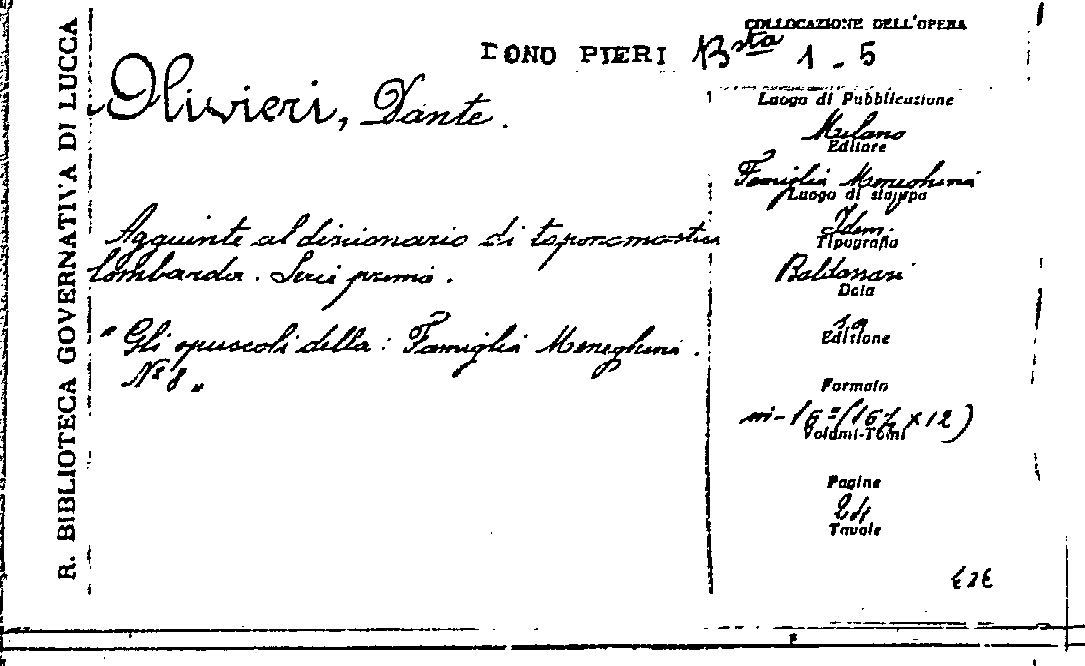 R. BIBLIOTECA GOVERNATIVA DI LUCCA
COLLOCAZIONE DELL'OPERA
DONO PIERI Bsta 1 - 5
Olivieri, Dante.
Aggiunte al dizionario di toponomastica
lombarda. Serie prima.
" Gli opuscoli della: Famiglia Meneghina.
N° 8 "
Luogo di Pubblicazione
Milano
Editore
Famiglia Meneghina
Luogo di stampa
Idem.
Tipografia
Data
Edizione
Formato
in-16°=(16½ x 12)
Volumi-Tomi
Pagine
24
Tavole